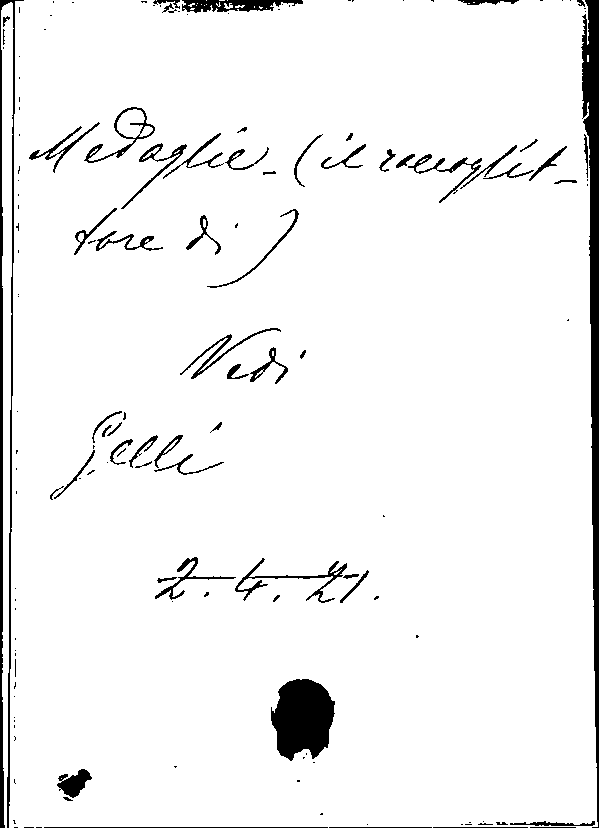 Medaglie - (il raccoglit-
tore di)
Vedi
Gelli
2. 4. 21.